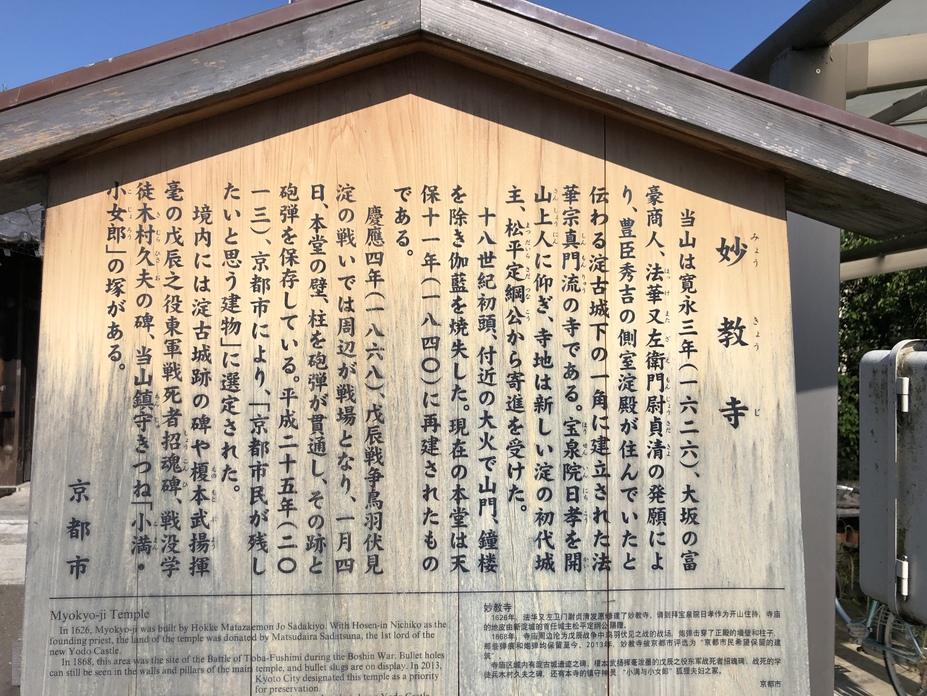 妙教寺
みょうきょうじ
当山は寛永三年(一六二六)、大坂の富
豪商人、法華又左衛門尉貞清の発願によ
り、豊臣秀吉の側室淀殿が住んでいたと
伝わる淀古城下の一角に建立された法
華宗真門流の寺である。宝泉院日孝を開
山上人に仰ぎ、寺地は新しい淀の初代城
主、松平定綱公から寄進を受けた。
十八世紀初頭、付近の大火で山門、鐘楼
を除き伽藍を焼失した。現在の本堂は天
保十一年(一八四〇)に再建されたもの
である。
慶應四年(一八六八)、戊辰戦争鳥羽伏見
淀の戦いでは周辺が戦場となり、一月四
日、本堂の壁、柱を砲弾が貫通し、その跡と
砲弾を保存している。平成二十五年(二〇
一三)、京都市により、「京都市民が残し
たいと思う建物」に選定された。
境内には淀古城跡の碑や榎本武揚揮
毫の戊辰之役東軍戦死者招魂碑、戦没学
徒木村久夫の碑、当山鎮守きつね「小満・
小女郎」の塚がある。
京都市
Myokyo-ji Temple
In 1626, Myokyo-ji was built by Hokke Matazaemon Jo Sadakiyo. With Hosen-in Nichiko as the
founding priest, the land of the temple was donated by Matsudaira Sadatsuna, the 1st lord of the
new Yodo Castle.
In 1868, this area was the site of the Battle of Toba-Fushimi during the Boshin War. Bullet holes
can still be seen in the walls and pillars of the main temple, and bullet slugs are on display. In 2013,
Kyoto City designated this temple as a priority
for preservation.
妙教寺
1626年,法华又左卫门尉贞清发愿修建了妙教寺,请到拜宝泉院日孝作为开山住持,寺庙
的地皮由新淀城的首任城主松平定纲公捐赠。
1868年,寺庙周边沦为戊辰战争中鸟羽伏见之战的战场,炮弹击穿了正殿的墙壁和柱子,
那些弹痕和炮弹均保留至今。2013年,妙教寺被京都市评选为"京都市民希望保留的建
筑"。
寺庙区域内有淀古城遗迹之碑、榎本武扬挥毫泼墨的戊辰之役东军战死者招魂碑、战死的学
徒兵木村久夫之碑,还有本寺的镇守神灵"小满与小女郎"狐狸夫妇之冢。
京都市